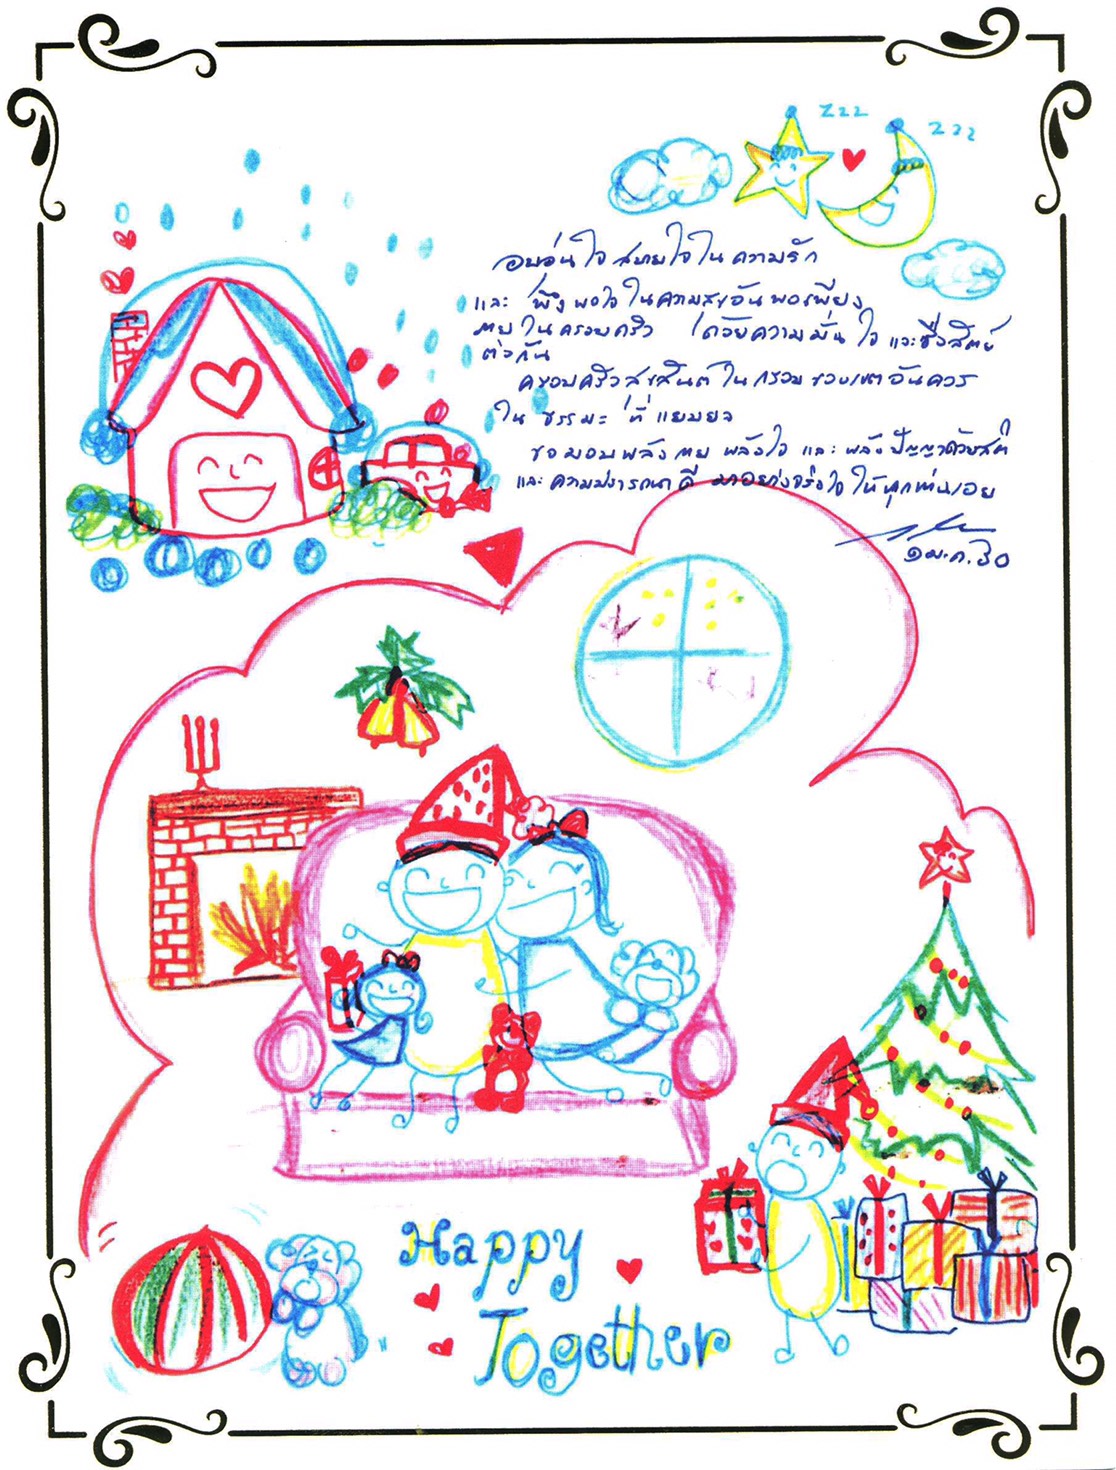 zzz
zzz
อบอุ่นใจ สบายใจ ใน ความรัก
และ พึงพอใจ ในความสุขอันพอเพียง
ภายในครอบครัว ด้วยความมั่นใจ และซื่อสัตย์
ต่อกัน
ครอบครัวสุขสันต์ ในกรอบขอบเขตอันควร
ใน ธรรมะ ที่ แยบยล
ขอมอบพลังกาย พลังใจ และ พลังปัญญาด้วยสติ
และ ความปรารถนาดี มาอย่างจริงใจ ให้ทุกท่านเอย
๑ ม.ค. ๖๐
Happy
Together